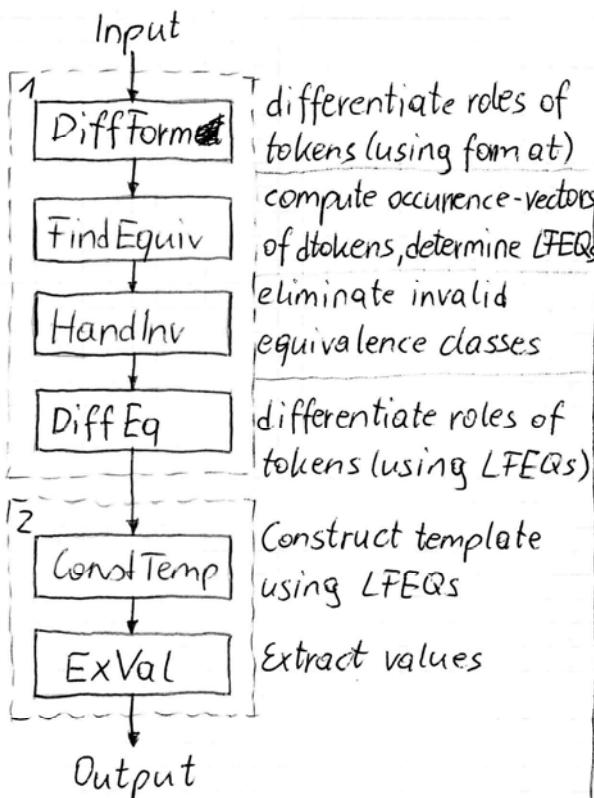 Input
1
DiffForm
differentiate roles of
tokens (using format)
FindEquiv
compute occurence-vectors
of dtokens, determine LFEQs
HandInv
eliminate invalid
equivalence classes
DiffEq
differentiate roles of
tokens (using LFEQs)
2
ConstTemp
Construct template
using LFEQs
ExVal
Extract values
Output